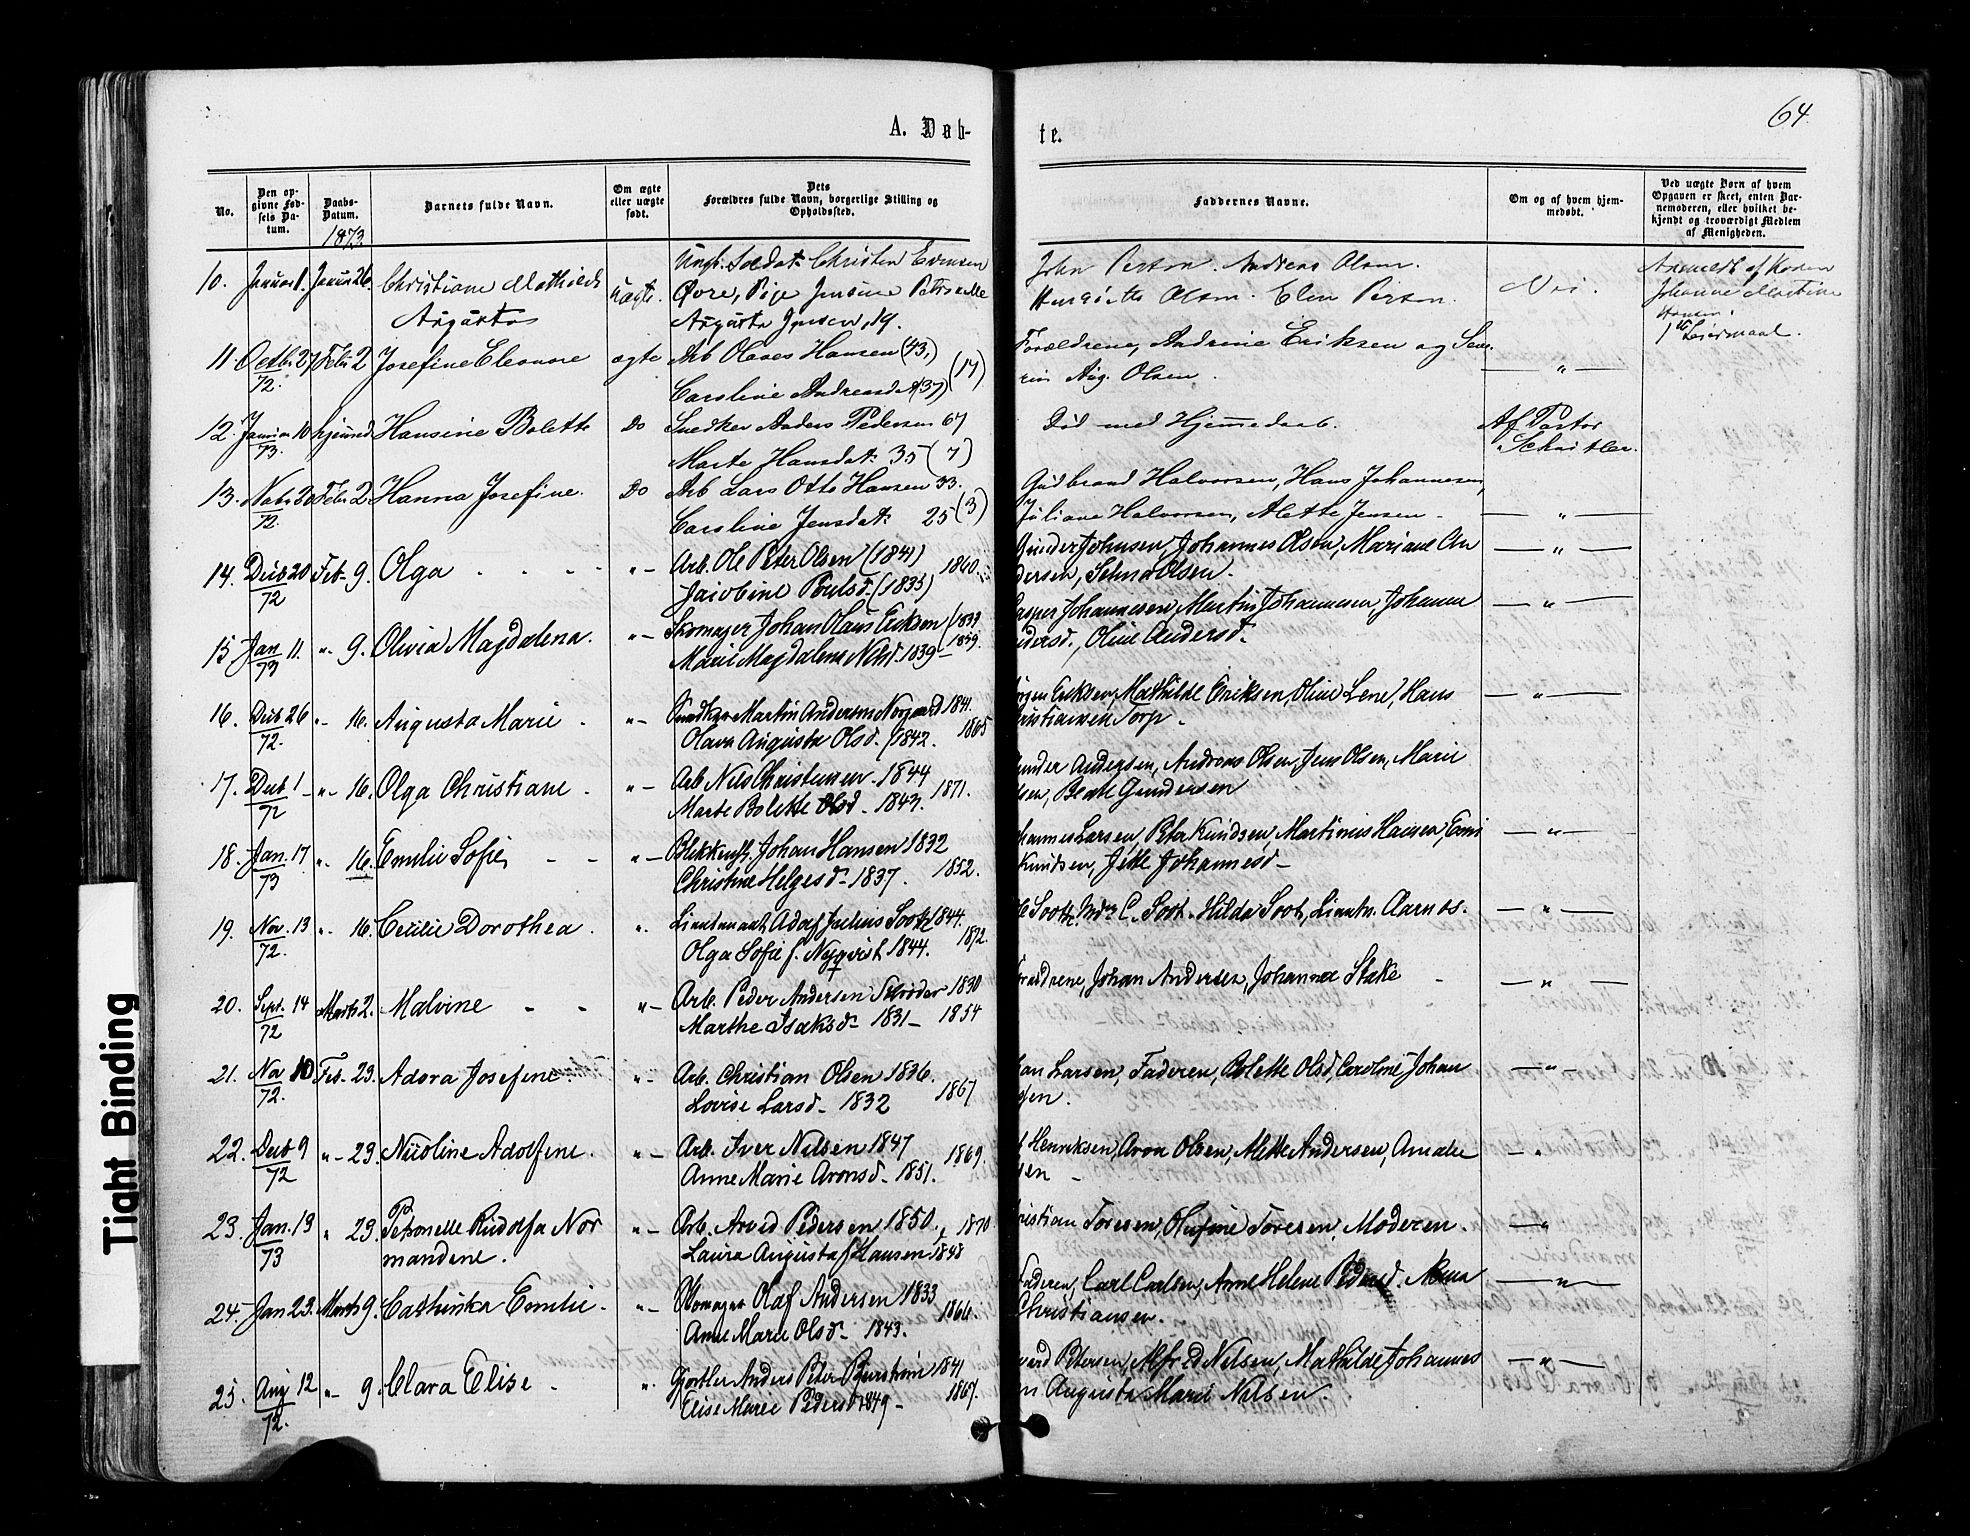 64.
A. Døb-
te.
No.
Den op-
givne Fød-
sels Da-
tum.
Daabs-
Datum.
1873
Barnets fulde Navn.
Om ægte
eller uægte
født.
Dets
Forældres fulde Navn, borgerlige Stilling og
Opholdssted.
Faddernes Navne.
Om og af hvem hjem-
medøbt.
Ved uægte Børn af hvem
Opgaven er skeet, enten Bar-
nemoderen, eller hvilket be-
kjendt og troværdigt Medlem
af Menigheden.
Ungk. Soldat Christen Evensen
10. Januar 1. Januar 26. Christiane Mathilde uægte. Øvre, Pige Jensine Petronelle
Augusta Augusta Jensen, 19.
John Person. Andreas Olsen.
Olsen. Elen Person. Nei.
Anmeldt af Konen
Johanne Martine
Hansen.
1ste Leiermaal.
11. Octbr 27 Febr 2 Josefine Eleonore ægte Arb Olaves Hansen (43,)
72. Caroline Andreasdt (37) (17)
Forældrene, Andrine Eriksen og Seve-
rin Aug. Olsen. — „ —
12. Januar 10 hjemmed Hansine Bolette Do Snedker Anders Pedersen 67
73. Marte Hansdat: 35 (7)
Død med Hjemmedaab. Af Pastor
13. Nobr 20 Febr 2 Hanna Josefine. Do Arb Lars Otto Hansen 33.
72. Caroline Jensdat: 25 (3)
Gudbrand Halvorsen, Hans Johannesen,
Juliane Halvorsen, Alette Jensen — „ —
14. Decb 20 Feb. 9. Olga „ — Arb. Ole Peter Olsen (1841) 1860.
72 Jacobine Poulsd. (1835)
Gunder Johnsen, Johannes Olsen, Mariane An — „ —
dersen, Olsen.
15 Jan. 11. „ 9. Olivia Magdalena. „ — Skomager Johan Olaus Eriksen (1833
73 Marie Magdalena Nilsd. 1839 — 1859.
Casper Johannesen, Martin Johannesen, Johanne — „ —
ndersd., Oline Andersd.
16. Decb 26 „ - 16. Augusta Marie. „ — Snedker Martin Andersen Norgaard 1841.
72. Olava Augusta Olsd. (1842. 1865
rgen Eriksen, Mathilde Eriksen, Oline Lene, Hans — „ —
ristiansen Torp.
17. Decb 1 „ - 16. Olga Christiane. „ — Arb. Nils Christensen 1844
72 Marte Bolette Olsd. 1843. 1871.
under Andersen, Andreas Olsen, Jens Olsen, Marie
lsen, Beate Gundersen
18. Jan. 17 „ 16. Emilie Sofie „ — Blikkensl. Johan Hansen 1832
73 Christine Helgesd. 1837. 1852.
hannes Larsen, Peter Knudsen, Martinus Hansen, Emi — „ —
Knudsen, Jette Johannesd —
19. Nov. 13 „ 16. Cecilie Dorothea. „ Lieutenant Adolf Julius Soot 1844.
72. Olga Sofie f. Nyqvist 1844. 1872.
Soot, C. Soot. Hilda Soot, Lieutn. Aarnes. — „ —
20. Sept. 14 Marts 2. Malvine „ — Arb. Peder Andersen 1830
72 Marthe Isaksd — 1831 — 1854
rældrene, Johan Andersen, Johanna Stake — „ —
21. No 10 Feb. 23. Adora Josefine. „ — Arb. Christian Olsen 1836.
72. Lovise Larsd — 1832 1867
han Larsen, Faderen, Bolette Olsd, Caroline Johan — „ —
sen.
22. Decb 9 „ — 23. Nicoline Adolfine. „ — Arb. Iver Nilsen 1847
72 Anne Marie Aronsd — 1851. 1869.
Henriksen, Aron Olsen, Mette Andersen, Amalie — „
sen —
23. Jan. 13 „ 23. Petronelle Rudolfa Nor „ — Arb. Arvid Pedersen 1850. 1870
73 mandine. Laura Augusta f. Hansen 1848
ristian Toresen, Olufine Toresen, Moderen. — „
24. Jan 23. Marts 9. Cathinka Emilie. „ — Skomager Olaf Andersen 1833
Anne Marie Olsd — 1843. 1866.
Faderen, Carl Carlsen, Anne Helene Pedersd. — „ —
Christiansen.
25. Aug 12 „ — 9. Clara Elise. „ Gjørtler Anders Peter 1841
72. Elise Marie Pedersd 1849 — 1867.
vard Petersen, Alfred Nilsen, Mathilde Johannes — „ —
en Augusta Marie Nilsen.
Tight Binding